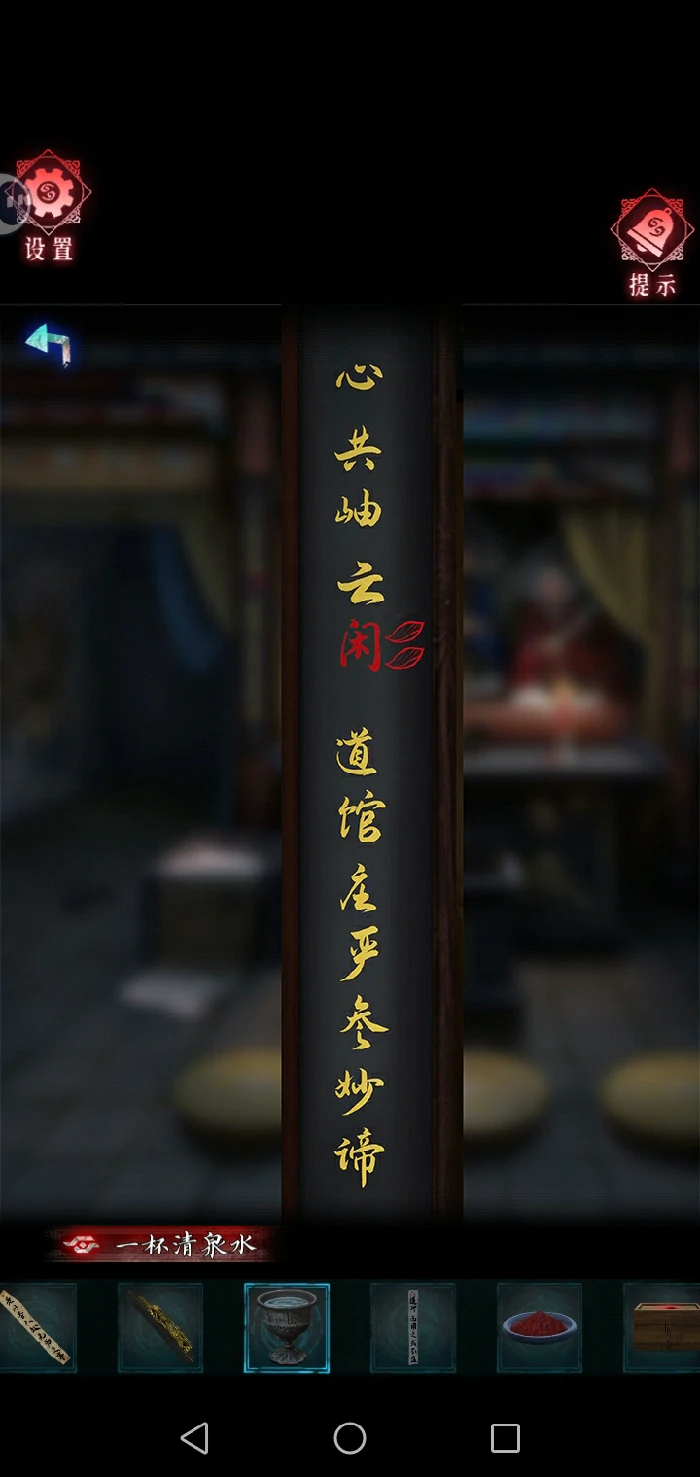 设置
提示
心共岫云闲
道馆庄严参妙谛
一杯清泉水